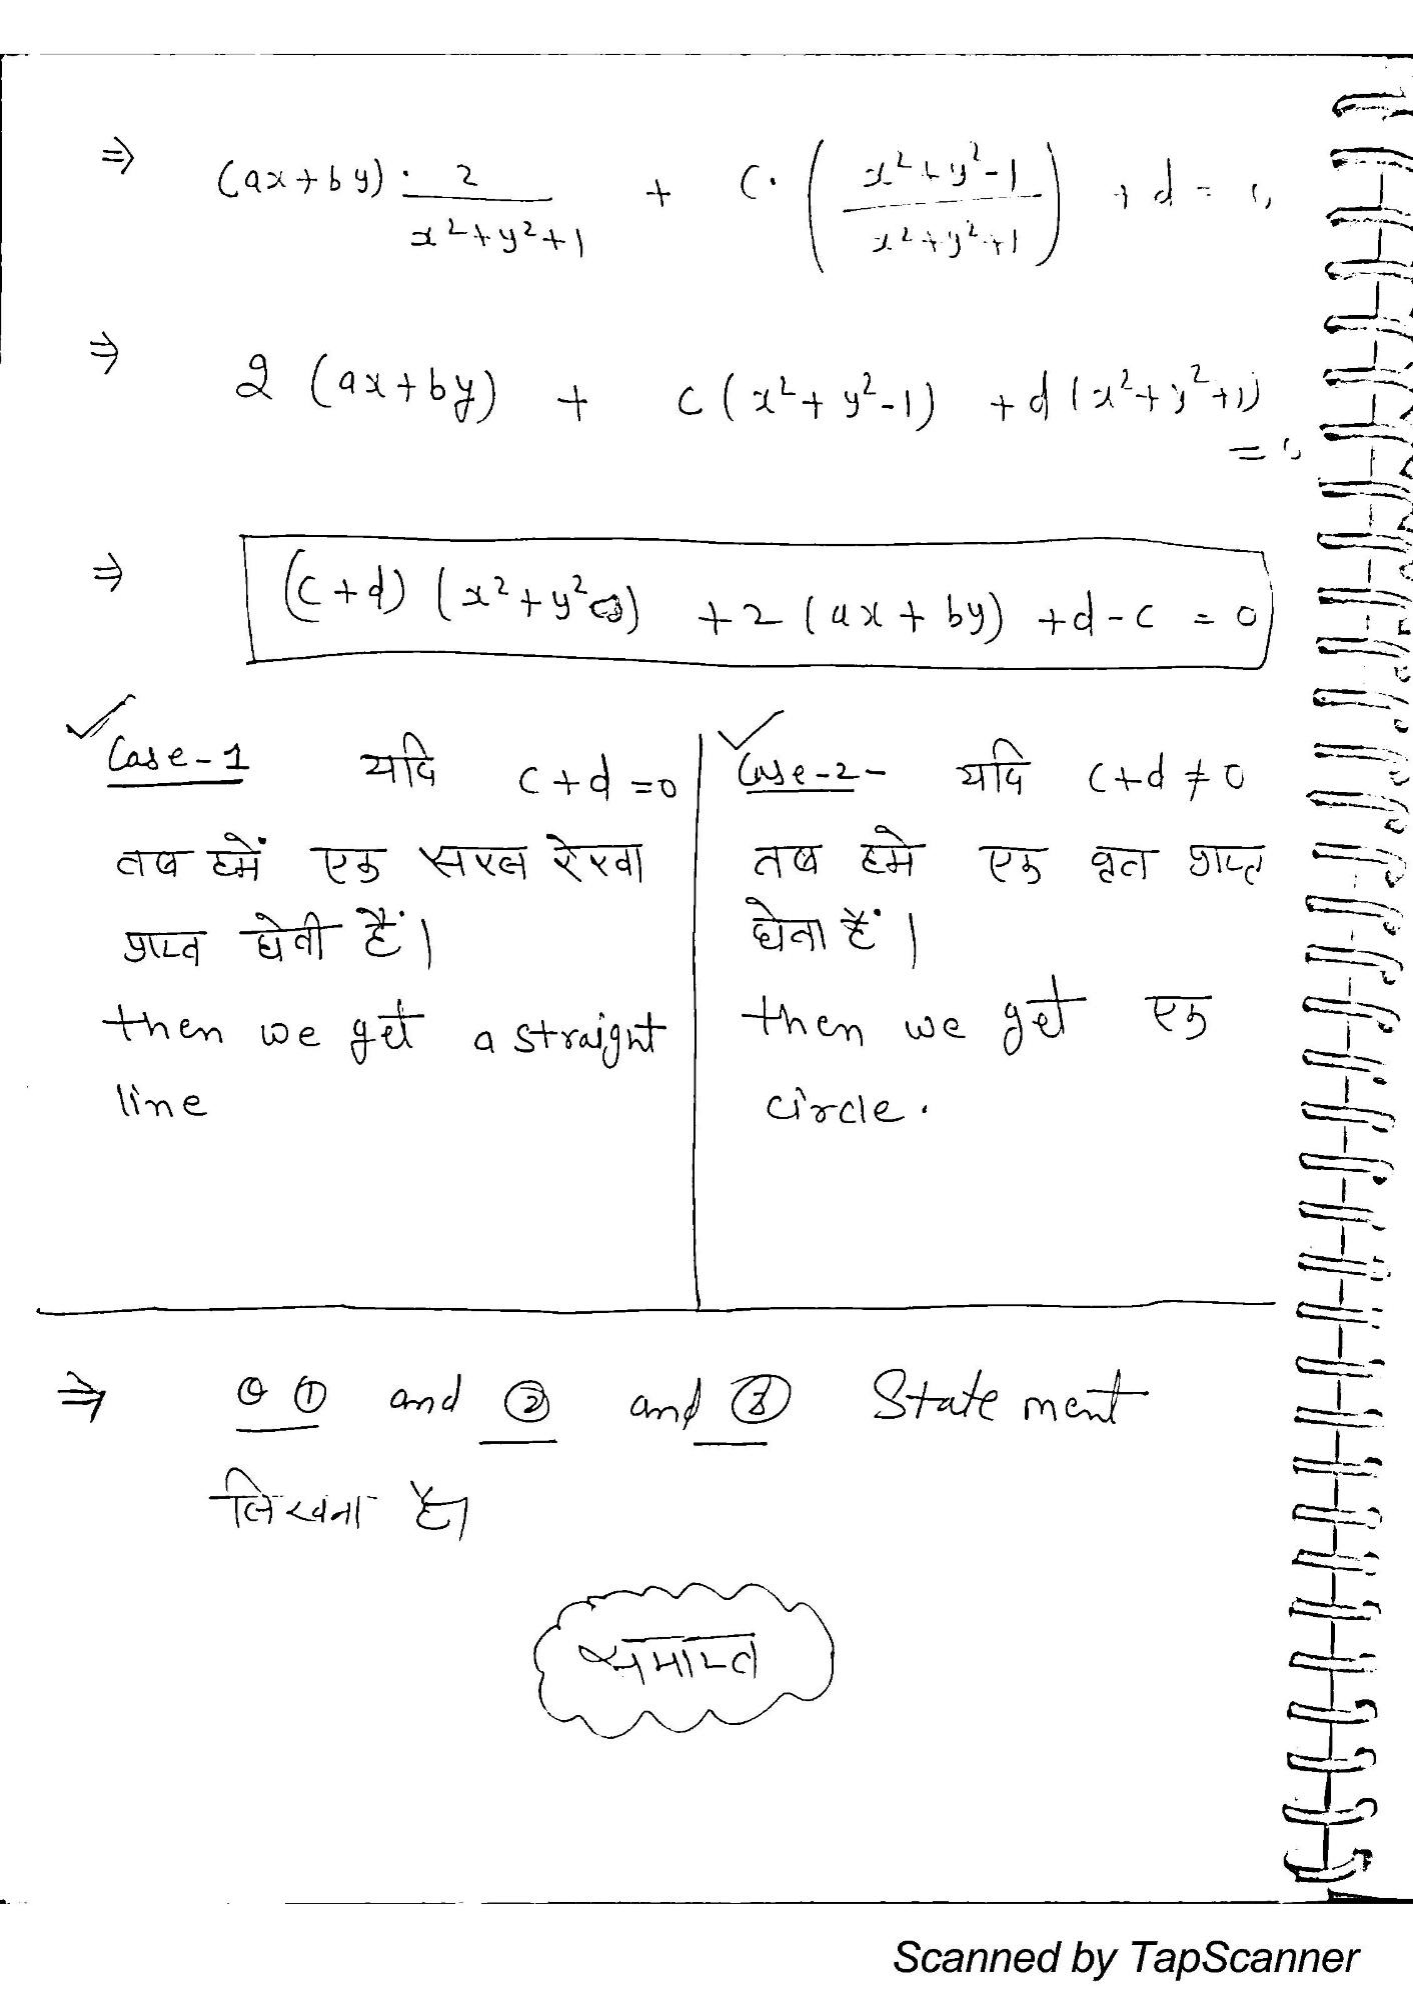 ⇒ (ax+by)· 2/(x²+y²+1) + c·((x²+y²-1)/(x²+y²+1)) + d = 0
⇒ 2 (ax+by) + c(x²+y²-1) + d(x²+y²+1)
= 0
⇒ (c+d) (x²+y²) + 2(ax+by) +d-c = 0
Case-1 यदि c+d=0
तब हमें एक सरल रेखा
प्राप्त होती हैं।
then we get a straight
line
Case-2- यदि c+d≠0
तब हमे एक वृत प्राप्त
होता हैं।
then we get एक
circle.
⇒ ① and ② and ③ Statement
लिखना है।
समाप्त
Scanned by TapScanner